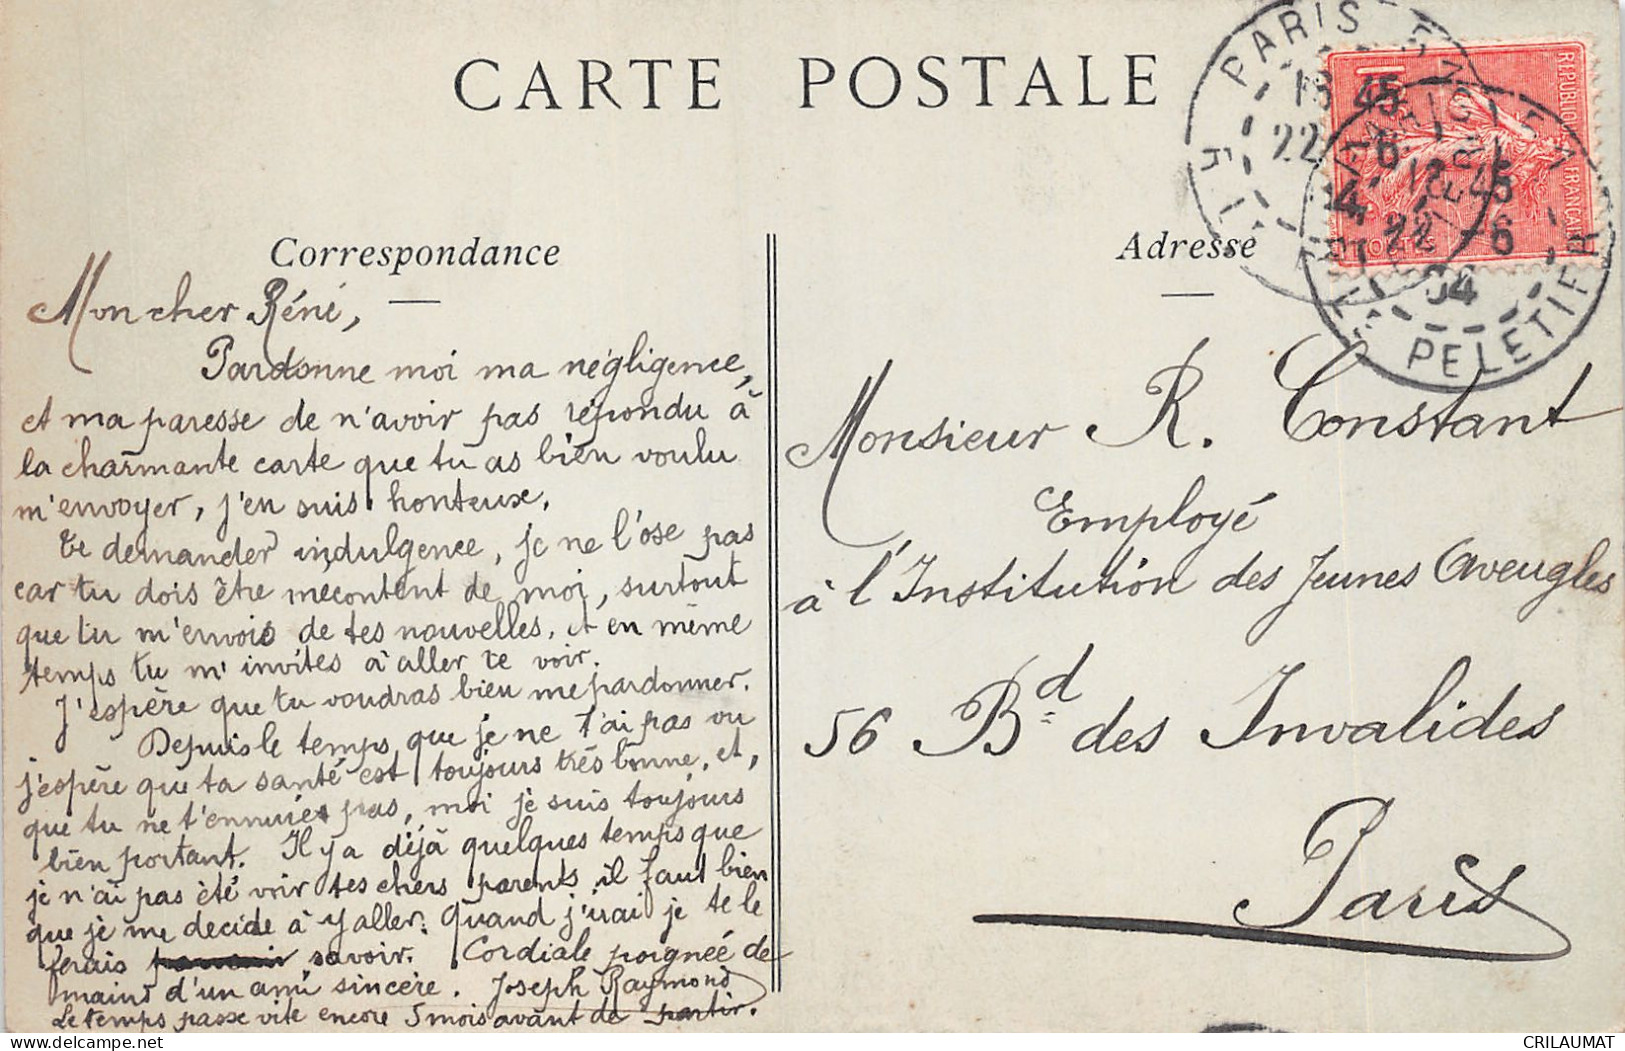 CARTE POSTALE
Correspondance
Mon cher Réné,
Pardonne moi ma négligence,
et ma paresse de n'avoir pas répondu à
la charmante carte que tu as bien voulu
m'envoyer, j'en suis honteux.
te demander indulgence, je ne l'ose pas
car tu dois être mécontent de moi, surtout
que tu m'envois de tes nouvelles, et en même
temps tu m'invites à aller te voir.
J'espère que tu voudras bien me pardonner.
Depuis le temps que je ne t'ai pas vu
j'espère que ta santé est toujours très bonne, et,
que tu ne t'ennuies pas, moi je suis toujours
bien portant. Il y a déjà quelques temps que
je n'ai pas été voir tes chers parents il faut bien
que je me décide à y aller. Quand j'irai je te le
ferais savoir. Cordiale poignée de
mains d'un ami sincère. Joseph Raymond
Le temps passe vite encore 5 mois avant de partir.
Adresse
Monsieur R. Constant
Employé
à l'Institution des Jeunes Aveugles
56 Bd des Invalides
Paris
PARIS
45
22
PELETIER
45
22 6
04
REPUBLIQUE FRANÇAISE
CRILAUMAT